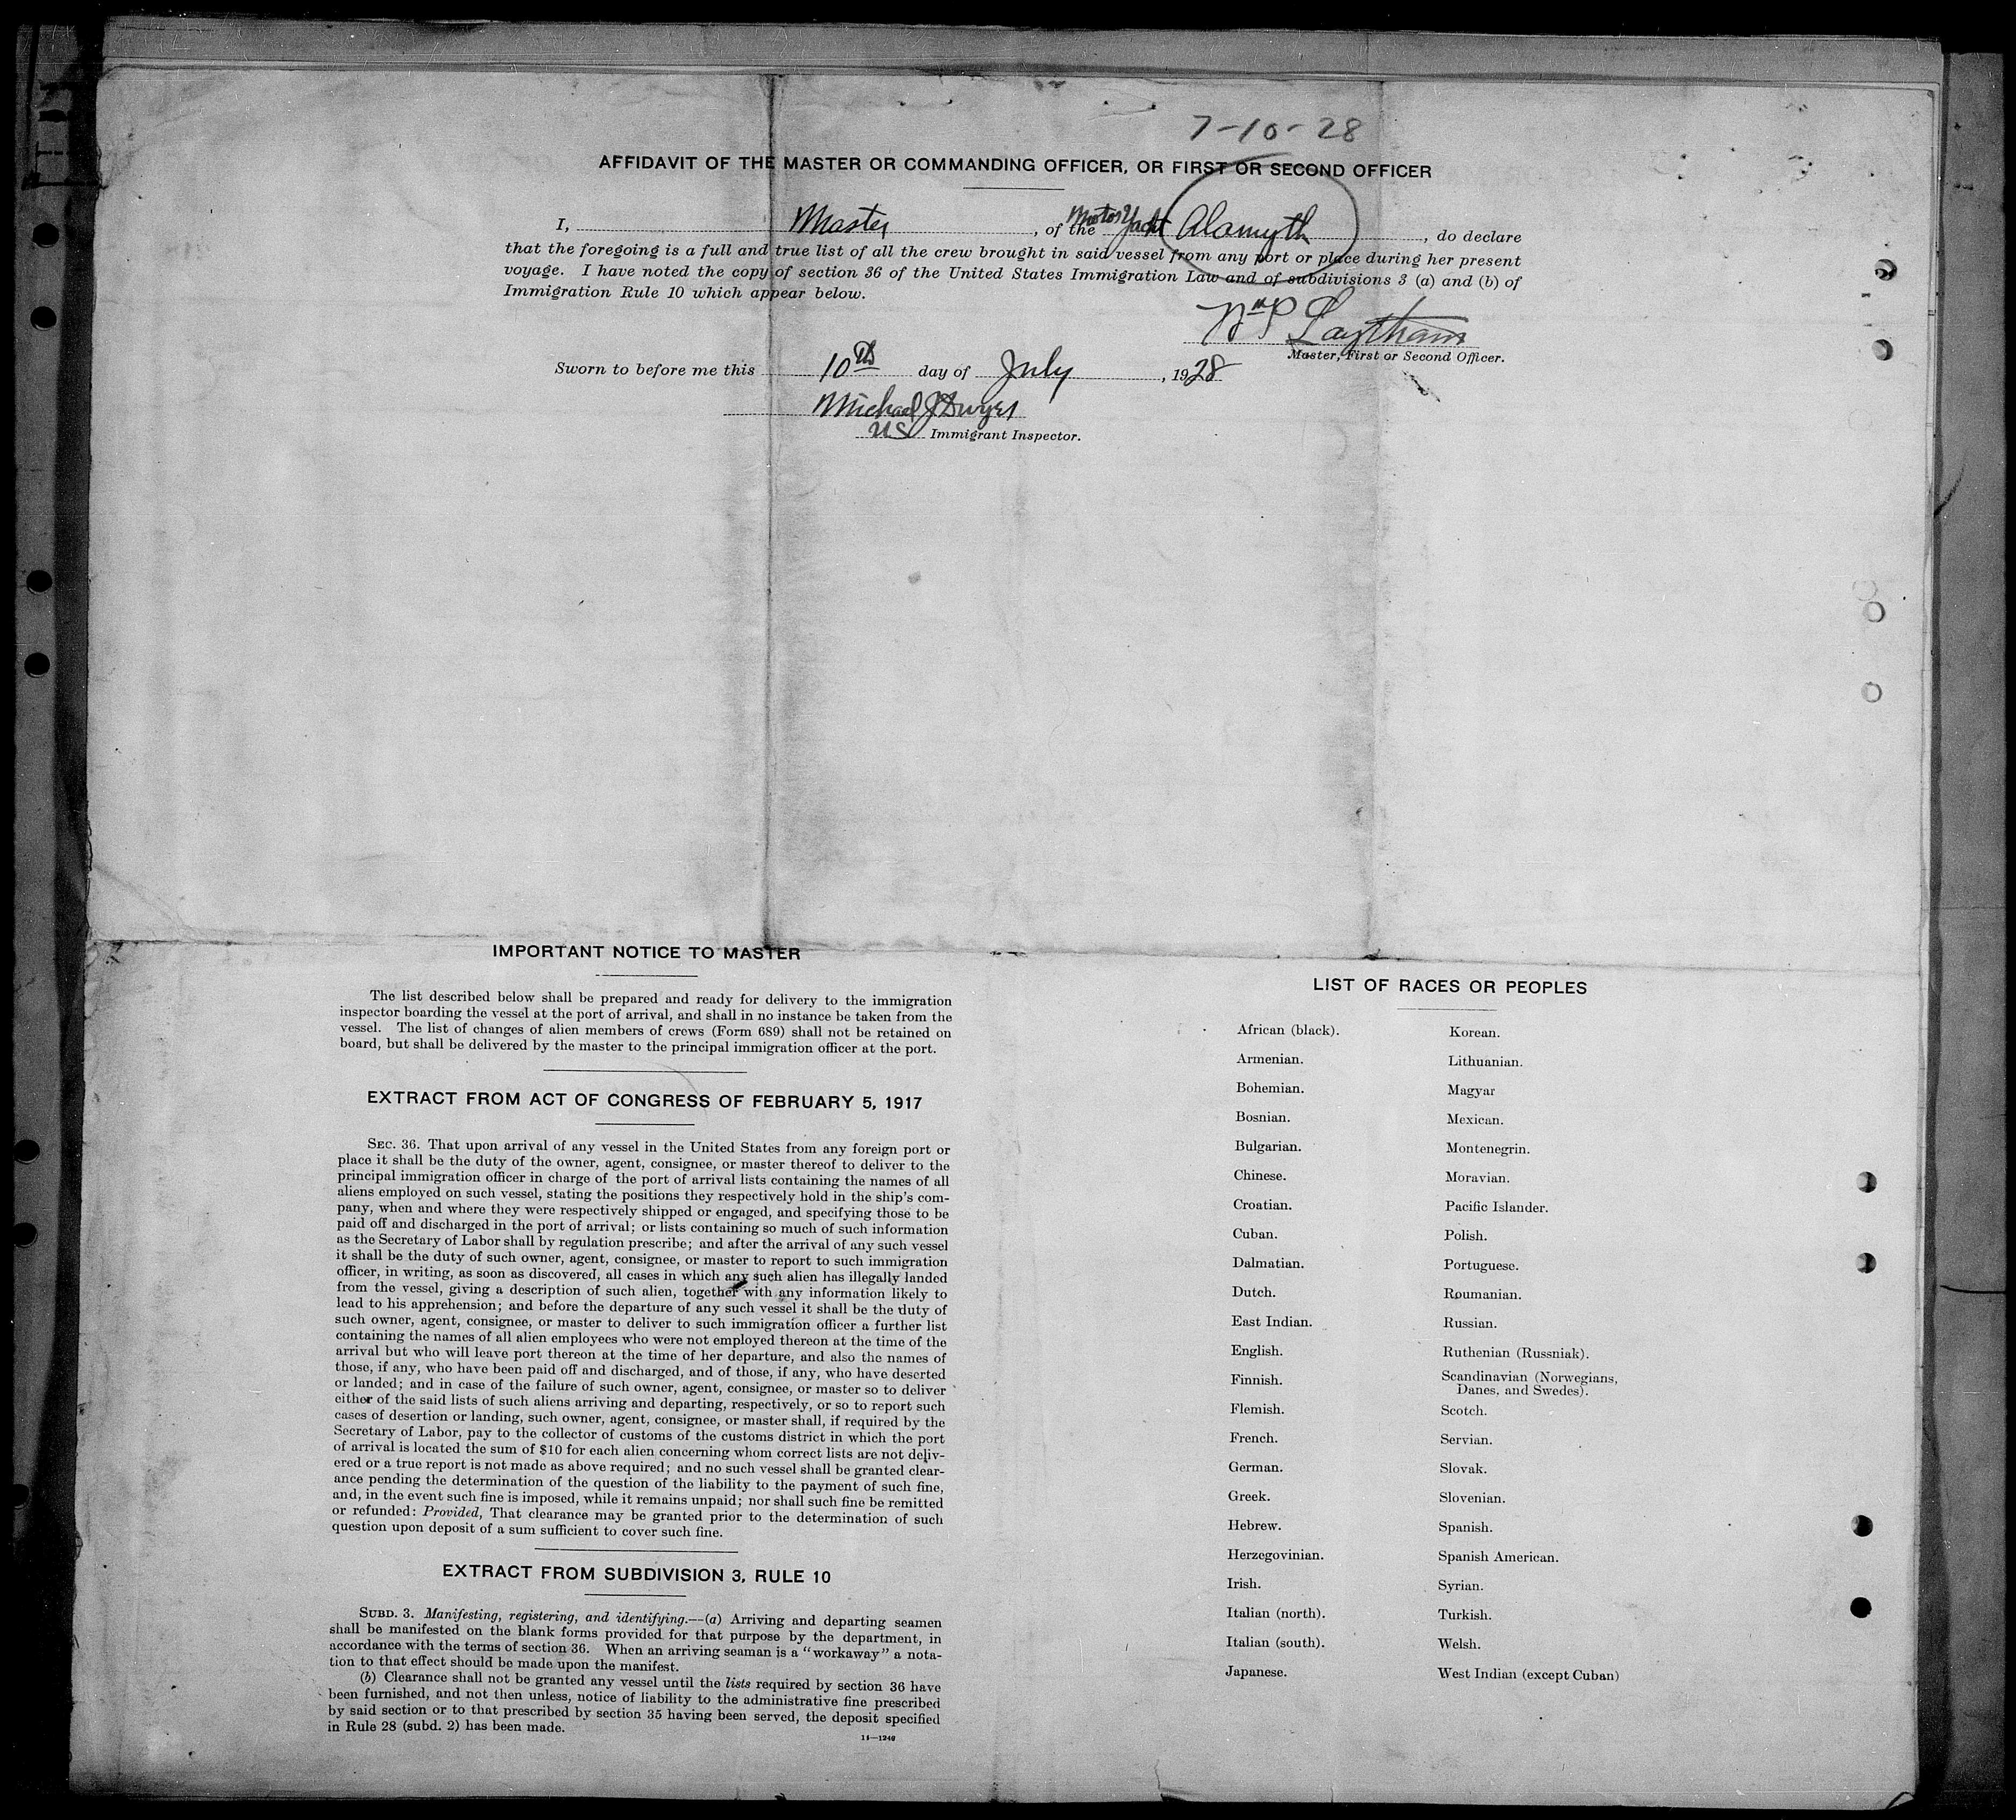 7-10-28
AFFIDAVIT OF THE MASTER OR COMMANDING OFFICER, OR FIRST OR SECOND OFFICER
I, Master, of the Motor Yacht Alamyth, do declare
that the foregoing is a full and true list of all the crew brought in said vessel from any port or place during her present
voyage. I have noted the copy of section 36 of the United States Immigration Law and of subdivisions 3 (a) and (b) of
Immigration Rule 10 which appear below.
Wm P Laytham
Master, First or Second Officer.
Sworn to before me this 10th day of July, 1928
Michael J Dwyer
US Immigrant Inspector.
IMPORTANT NOTICE TO MASTER
The list described below shall be prepared and ready for delivery to the immigration
inspector boarding the vessel at the port of arrival, and shall in no instance be taken from the
vessel. The list of changes of alien members of crews (Form 689) shall not be retained on
board, but shall be delivered by the master to the principal immigration officer at the port.
EXTRACT FROM ACT OF CONGRESS OF FEBRUARY 5, 1917
SEC. 36. That upon arrival of any vessel in the United States from any foreign port or
place it shall be the duty of the owner, agent, consignee, or master thereof to deliver to the
principal immigration officer in charge of the port of arrival lists containing the names of all
aliens employed on such vessel, stating the positions they respectively hold in the ship's com-
pany, when and where they were respectively shipped or engaged, and specifying those to be
paid off and discharged in the port of arrival; or lists containing so much of such information
as the Secretary of Labor shall by regulation prescribe; and after the arrival of any such vessel
it shall be the duty of such owner, agent, consignee, or master to report to such immigration
officer, in writing, as soon as discovered, all cases in which any such alien has illegally landed
from the vessel, giving a description of such alien, together with any information likely to
lead to his apprehension; and before the departure of any such vessel it shall be the duty of
such owner, agent, consignee, or master to deliver to such immigration officer a further list
containing the names of all alien employees who were not employed thereon at the time of the
arrival but who will leave port thereon at the time of her departure, and also the names of
those, if any, who have been paid off and discharged, and of those, if any, who have deserted
or landed; and in case of the failure of such owner, agent, consignee, or master so to deliver
either of the said lists of such aliens arriving and departing, respectively, or so to report such
cases of desertion or landing, such owner, agent, consignee, or master shall, if required by the
Secretary of Labor, pay to the collector of customs of the customs district in which the port
of arrival is located the sum of $10 for each alien concerning whom correct lists are not deliv-
ered or a true report is not made as above required; and no such vessel shall be granted clear-
ance pending the determination of the question of the liability to the payment of such fine,
and, in the event such fine is imposed, while it remains unpaid; nor shall such fine be remitted
or refunded: Provided, That clearance may be granted prior to the determination of such
question upon deposit of a sum sufficient to cover such fine.
EXTRACT FROM SUBDIVISION 3, RULE 10
SUBD. 3. Manifesting, registering, and identifying.—(a) Arriving and departing seamen
shall be manifested on the blank forms provided for that purpose by the department, in
accordance with the terms of section 36. When an arriving seaman is a "workaway" a nota-
tion to that effect should be made upon the manifest.
(b) Clearance shall not be granted any vessel until the lists required by section 36 have
been furnished, and not then unless, notice of liability to the administrative fine prescribed
by said section or to that prescribed by section 35 having been served, the deposit specified
in Rule 28 (subd. 2) has been made.
14—1240
LIST OF RACES OR PEOPLES
African (black).
Armenian.
Bohemian.
Bosnian.
Bulgarian.
Chinese.
Croatian.
Cuban.
Dalmatian.
Dutch.
East Indian.
English.
Finnish.
Flemish.
French.
German.
Greek.
Hebrew.
Herzegovinian.
Irish.
Italian (north).
Italian (south).
Japanese.
Korean.
Lithuanian.
Magyar
Mexican.
Montenegrin.
Moravian.
Pacific Islander.
Polish.
Portuguese.
Roumanian.
Russian.
Ruthenian (Russniak).
Scandinavian (Norwegians,
Danes, and Swedes).
Scotch.
Servian.
Slovak.
Slovenian.
Spanish.
Spanish American.
Syrian.
Turkish.
Welsh.
West Indian (except Cuban)